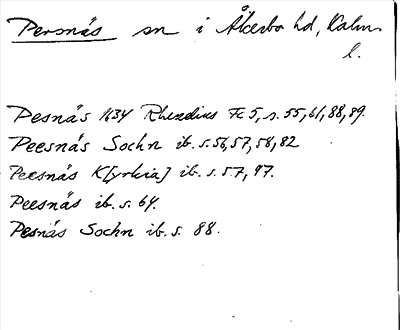 Persnäs sn i Åkerbo hd, Kalm.
l.
Pesnäs 1634 Rhezelius Fc 5, s. 55, 61, 88, 89.
Peesnäs Sochn ib. s. 56, 57, 58, 82
Peesnäs K[yrkia] ib. s. 57, 97.
Peesnäs ib. s. 64.
Pesnäs Sochn ib. s. 88.